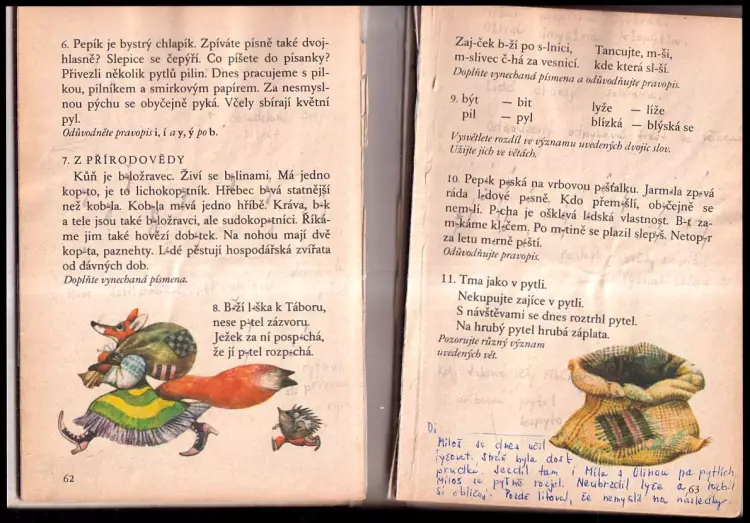 6. Pepík je bystrý chlapík. Zpíváte písně také dvoj-
hlasně? Slepice se čepýří. Co píšete do písanky?
Přivezli několik pytlů pilin. Dnes pracujeme s pil-
kou, pilníkem a smirkovým papírem. Za nesmysl-
nou pýchu se obyčejně pyká. Včely sbírají květní
pyl.
Odůvodněte pravopis i, í a y, ý po b.
7. Z PŘÍRODOVĚDY
Kůň je b-ložravec. Živí se b-linami. Má jedno
kop-to, je to lichokop-tník. Hřebec b-vá statnější
než kob-la. Kob-la m-vá jedno hříbě. Kráva, b-k
a tele jsou také b-ložravci, ale sudokop-tníci. Říká-
me jim také hovězí dob-tek. Na nohou mají dvě
kop-ta, paznehty. L-dé pěstují hospodářská zvířata
od dávných dob.
Doplňte vynechaná písmena.
8. B-ží l-ška k Táboru,
nese p-tel zázvoru.
Ježek za ní posp-chá,
že jí p-tel rozp-chá.
62
Zaj-ček b-ží po s-lnici,
m-slivec č-há za vesnicí.
Tancujte, m-ši,
kde která sl-ší.
Doplňte vynechaná písmena a odůvodňujte pravopis.
9. být — bit
pil — pyl
lyže — líže
blízká — blýská se
Vysvětlete rozdíl ve významu uvedených dvojic slov.
Užijte jich ve větách.
10. Pep-k p-ská na vrbovou p-šťalku. Jarm-la zp-vá
ráda l-dové p-sně. Kdo přem-šlí, ob-čejně se
nem-lí. P-cha je ošklivá l-dská vlastnost. B-t za-
m-káme kl-čem. Po m-tině se plazil slep-š. Netop-r
za letu m-rně p-ští.
Odůvodňujte pravopis.
11. Tma jako v pytli.
Nekupujte zajíce v pytli.
S návštěvami se dnes roztrhl pytel.
Na hrubý pytel hrubá záplata.
Pozorujte různý význam
uvedených vět.
Miloš se dnes učil
lyžovat. Stráň byla dost
prudká. Jezdil tam i Míla s Olinou po pytlích.
Miloš se pyšně rozjel. Neubrzdil lyže a
si obličej. Pozdě litoval, že nemyslil na následky.
63